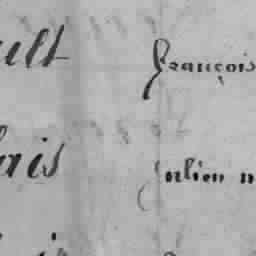 ult François
lais Julien n